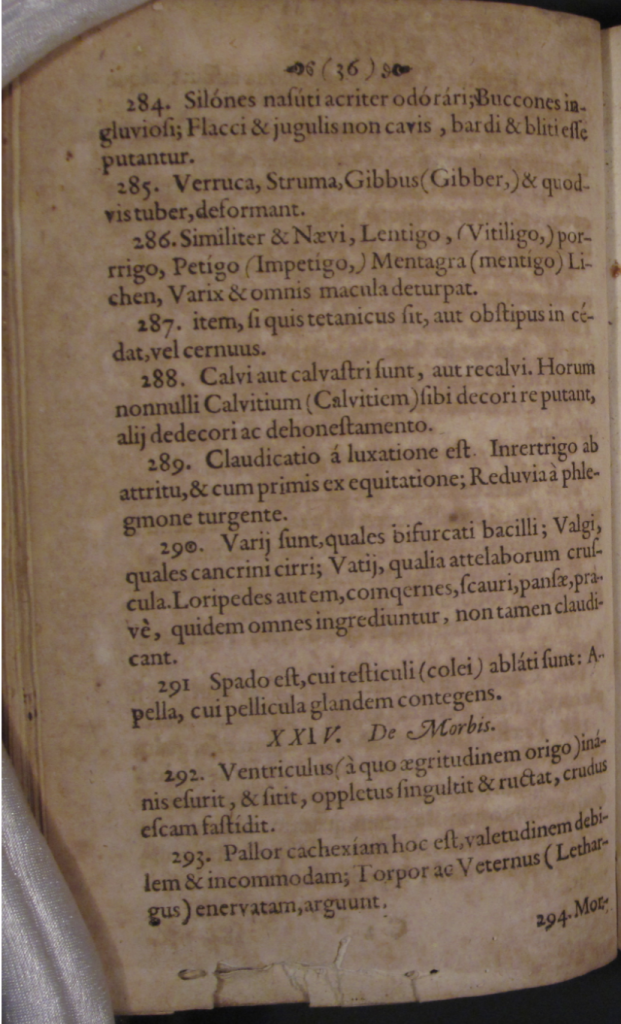 (36)
284. Silónes nasúti acriter odórári; Buccones in-
gluviosi; Flacci & jugulis non cavis, bardi & bliti esse
putantur.
285. Verruca, Struma, Gibbus (Gibber,) & quod-
vis tuber, deformant.
286. Similiter & Nævi, Lentigo, (Vitiligo,) por-
rrigo, Petígo (Impetigo,) Mentagra (mentigo) Li-
chen, Varix & omnis macula deturpat.
287. item, si quis tetanicus sit, aut obstipus in cé-
dat, vel cernuus.
288. Calvi aut calvastri sunt, aut recalvi. Horum
nonnulli Calvitium (Calvitiem) sibi decori re putant,
alij dedecori ac dehonestamento.
289. Claudicatio á luxatione est. Inrertrigo ab
attritu, & cum primis ex equitatione; Reduvia à phle-
gmone turgente.
290. Varij sunt, quales bifurcati bacilli; Valgi,
quales cancrini cirri; Vatij, qualia attelaborum crus-
cula. Loripedes autem, comqernes, scauri, pansæ, pra-
vè, quidem omnes ingrediuntur, non tamen claudi-
cant.
291 Spado est, cui testiculi (colei) abláti sunt: A-
pella, cui pellicula glandem contegens.
XXIV. De Morbis.
292. Ventriculus (à quo ægritudinem origo) iná-
nis esurit, & sitit, oppletus singultit & ructat, crudus
escam fastídit.
293. Pallor cachexíam hoc est, valetudinem debi-
lem & incommodam; Torpor ac Veternus (Lethar-
gus) enervatam, arguunt.
294. Mor-